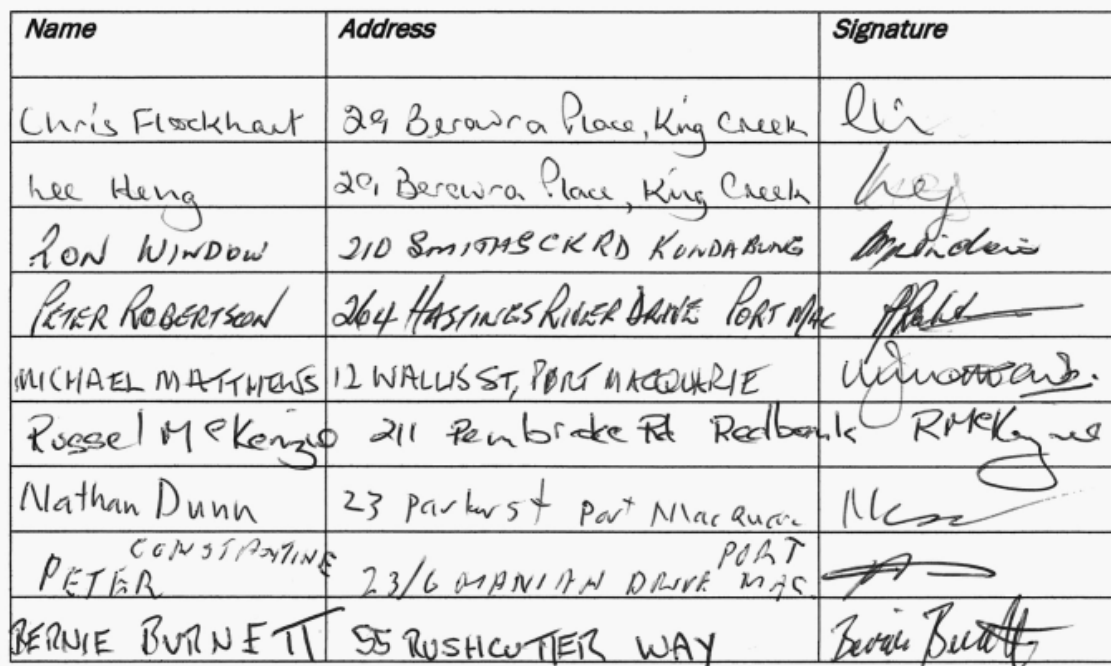 Name Address Signature
Chris Flockhart 29 Berowra Place, King Creek
Lee Heng 29 Berowra Place, King Creek
RON WINDOW 210 SMITHS CK RD KUNDABUNG
PETER ROBERTSON 264 HASTINGS RIVER DRIVE PORT MAC
MICHAEL MATTHEWS 12 WALLIS ST, PORT MACQUARIE
Russel McKenzie 211 Pembroke Rd Redbank RMcKenzie
Nathan Dunn 23 Parker st Port Macquarie
PETER CONSTANTINE 23/6 DRIVE PORT MAC
BERNIE BURNETT 55 RUSHCUTTER WAY Bernie Burnett